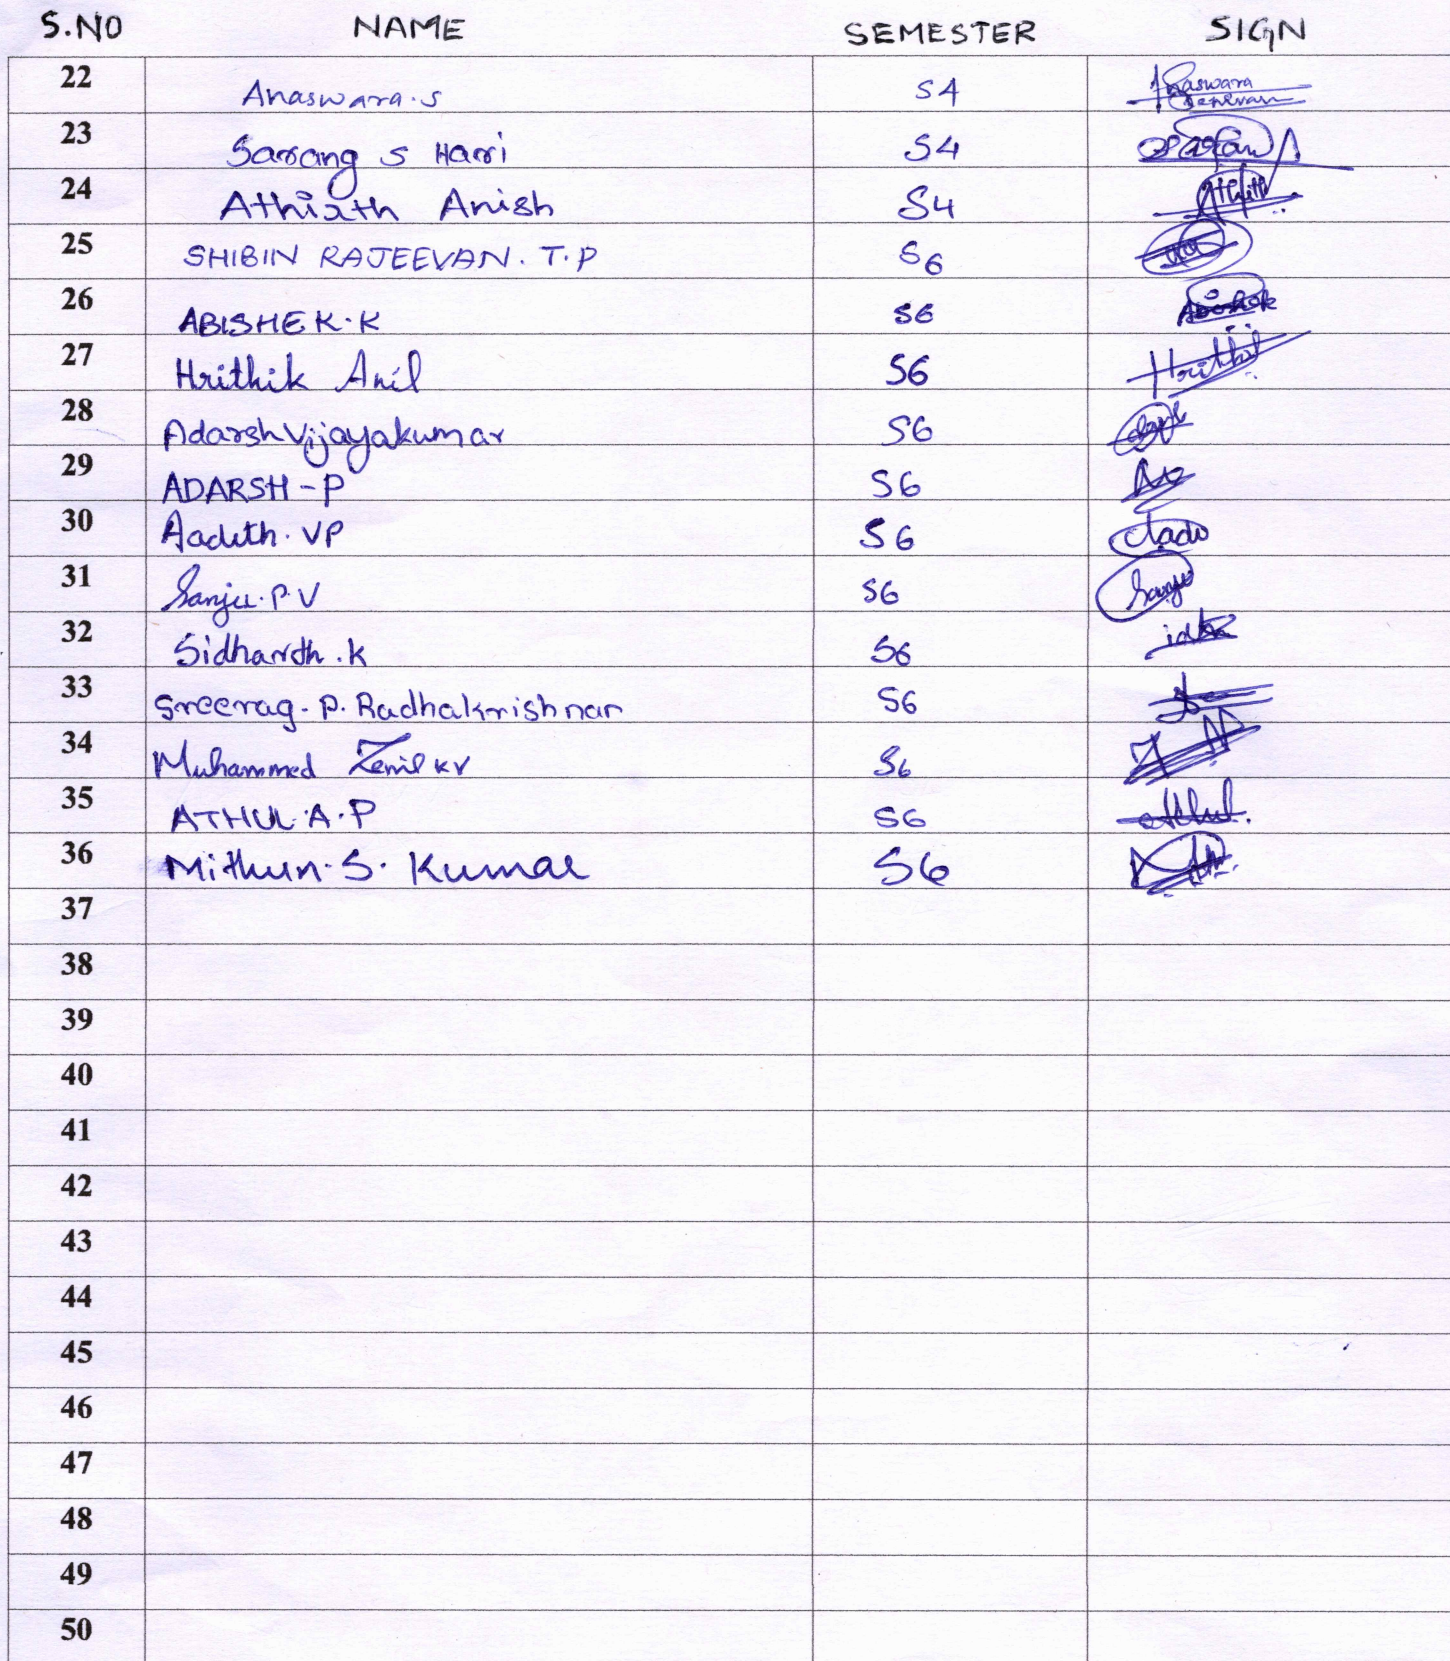 S.NO NAME SEMESTER SIGN
22 Anaswara.s S4 Anaswara
23 Sarang s Hari S4
24 Athirth Anish S4
25 SHIBIN RAJEEVAN. T.P S6
26 ABISHEK.K S6
27 Hrithik Anil S6 Hrithik
28 Adarsh Vijayakumar S6
29 ADARSH-P S6
30 Aadith. VP S6
31 Sanju.P.V S6 Sanju
32 Sidharth.K S6
33 Sreerag.P.Radhakrishnan S6
34 Muhammed Zemil KV S6
35 ATHUL.A.P S6 Athul.
36 Mithun.S.Kumar S6
37
38
39
40
41
42
43
44
45
46
47
48
49
50